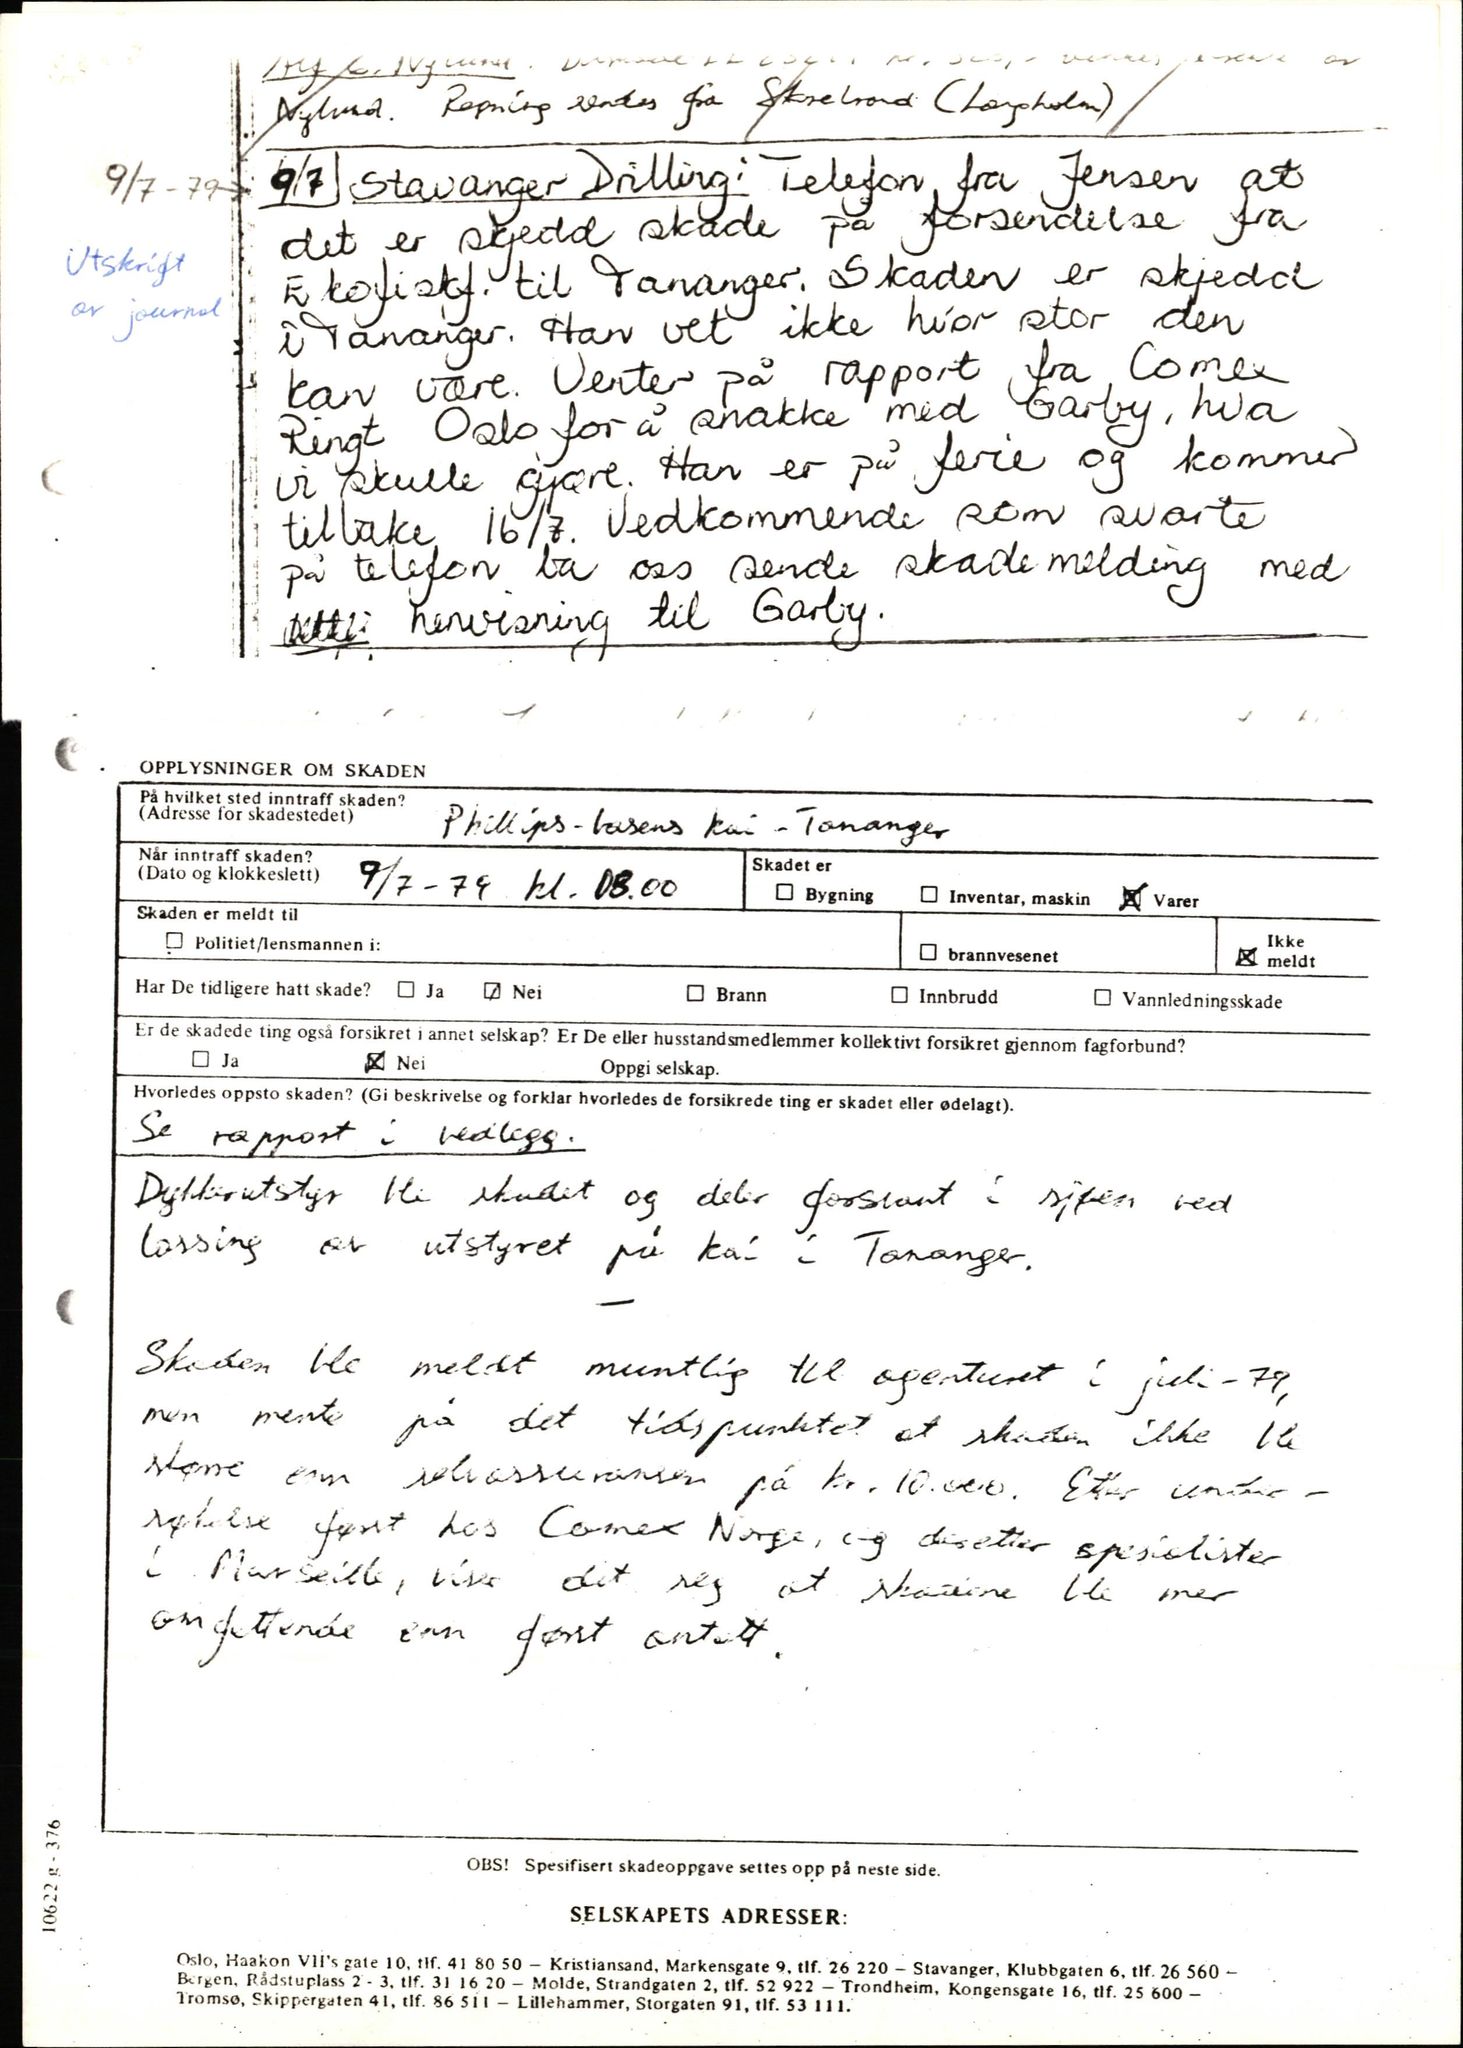 Nylund. Regning sendes fra
9/7 - 79 →
Utskrift
av journal
9/7 Stavanger Drilling: Telefon fra Jensen at
det er skjedd skade på forsendelse fra
Ekofiskf. til Tananger. Skaden er skjedd
i Tananger. Han vet ikke hvor stor den
kan være. Venter på rapport fra Comex
Ringt Oslo for å snakke med Garby, hva
vi skulle gjøre. Han er på ferie og kommer
tilbake 16/7. Vedkommende som svarte
på telefon ba oss sende skademelding med
henvisning til Garby.
OPPLYSNINGER OM SKADEN
På hvilket sted inntraff skaden?
(Adresse for skadestedet) Phillips-basens kai - Tananger
Når inntraff skaden?
(Dato og klokkeslett) 9/7 - 79 kl. 08.00
Skadet er
☐ Bygning ☐ Inventar, maskin ☒ Varer
Skaden er meldt til
☐ Politiet/lensmannen i: ☐ brannvesenet ☒ Ikke
meldt
Har De tidligere hatt skade? ☐ Ja ☒ Nei ☐ Brann ☐ Innbrudd ☐ Vannledningsskade
Er de skadede ting også forsikret i annet selskap? Er De eller husstandsmedlemmer kollektivt forsikret gjennom fagforbund?
☐ Ja ☒ Nei Oppgi selskap.
Hvorledes oppsto skaden? (Gi beskrivelse og forklar hvorledes de forsikrede ting er skadet eller ødelagt).
Se rapport i vedlegg.
Dykkerutstyr ble skadet og deler forsvant i sjøen ved
lossing av utstyret på kai i Tananger.
—
Skaden ble meldt muntlig til agenturet i juli - 79,
men mente på det tidspunktet at skaden ikke ble
større enn selvassuransen på kr. 10.000. Etter under-
søkelse først hos Comex Norge, og deretter spesialister
i Marseille, viser det seg at skadene ble mer
omfattende enn først antatt.
10622 g - 376
OBS! Spesifisert skadeoppgave settes opp på neste side.
SELSKAPETS ADRESSER:
Oslo, Haakon VII's gate 10, tlf. 41 80 50 — Kristiansand, Markensgate 9, tlf. 26 220 — Stavanger, Klubbgaten 6, tlf. 26 560 —
Bergen, Rådstuplass 2 - 3, tlf. 31 16 20 — Molde, Strandgaten 2, tlf. 52 922 — Trondheim, Kongensgate 16, tlf. 25 600 —
Tromsø, Skippergaten 41, tlf. 86 511 — Lillehammer, Storgaten 91, tlf. 53 111.